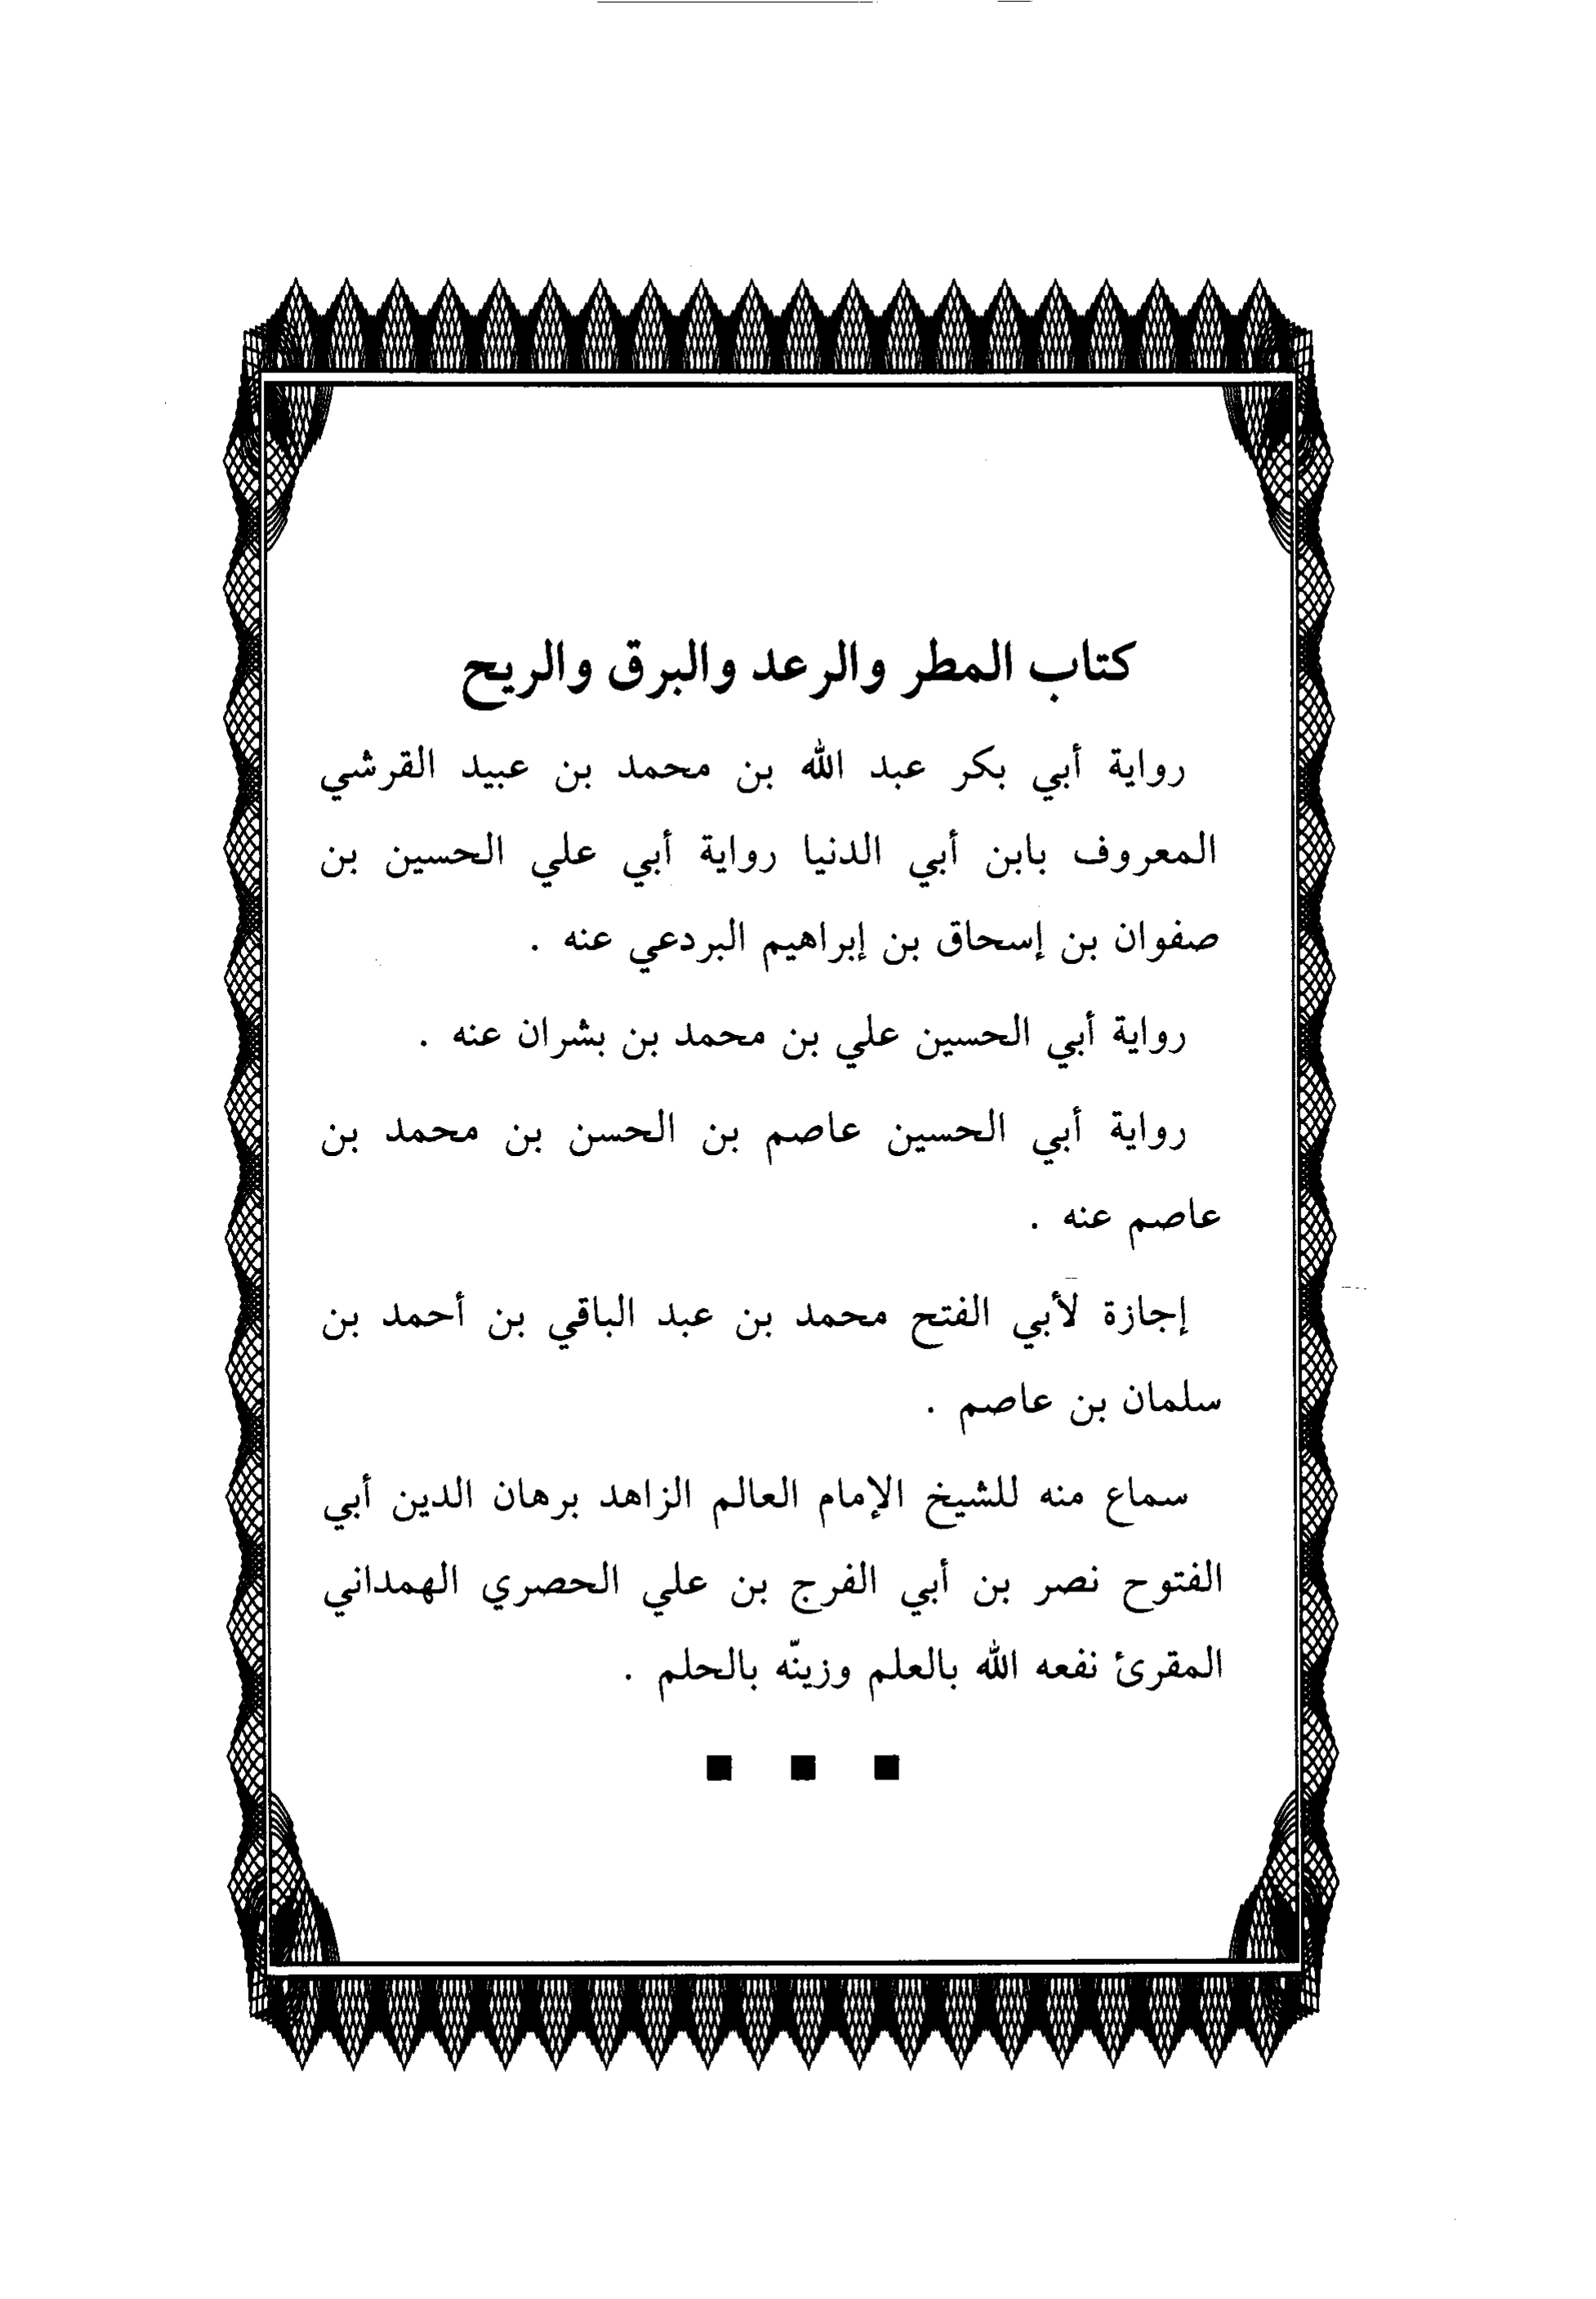 كتاب المطر والرعد والبرق والريح
رواية أبي بكر عبد الله بن محمد بن عبيد القرشي
المعروف بابن أبي الدنيا رواية أبي علي الحسين بن
صفوان بن إسحاق بن إبراهيم البردعي عنه .
رواية أبي الحسين علي بن محمد بن بشران عنه .
رواية أبي الحسين عاصم بن الحسن بن محمد بن
عاصم عنه .
إجازة لأبي الفتح محمد بن عبد الباقي بن أحمد بن
سلمان بن عاصم .
سماع منه للشيخ الإمام العالم الزاهد برهان الدين أبي
الفتوح نصر بن أبي الفرج بن علي الحصري الهمداني
المقرئ نفعه الله بالعلم وزينّه بالحلم .